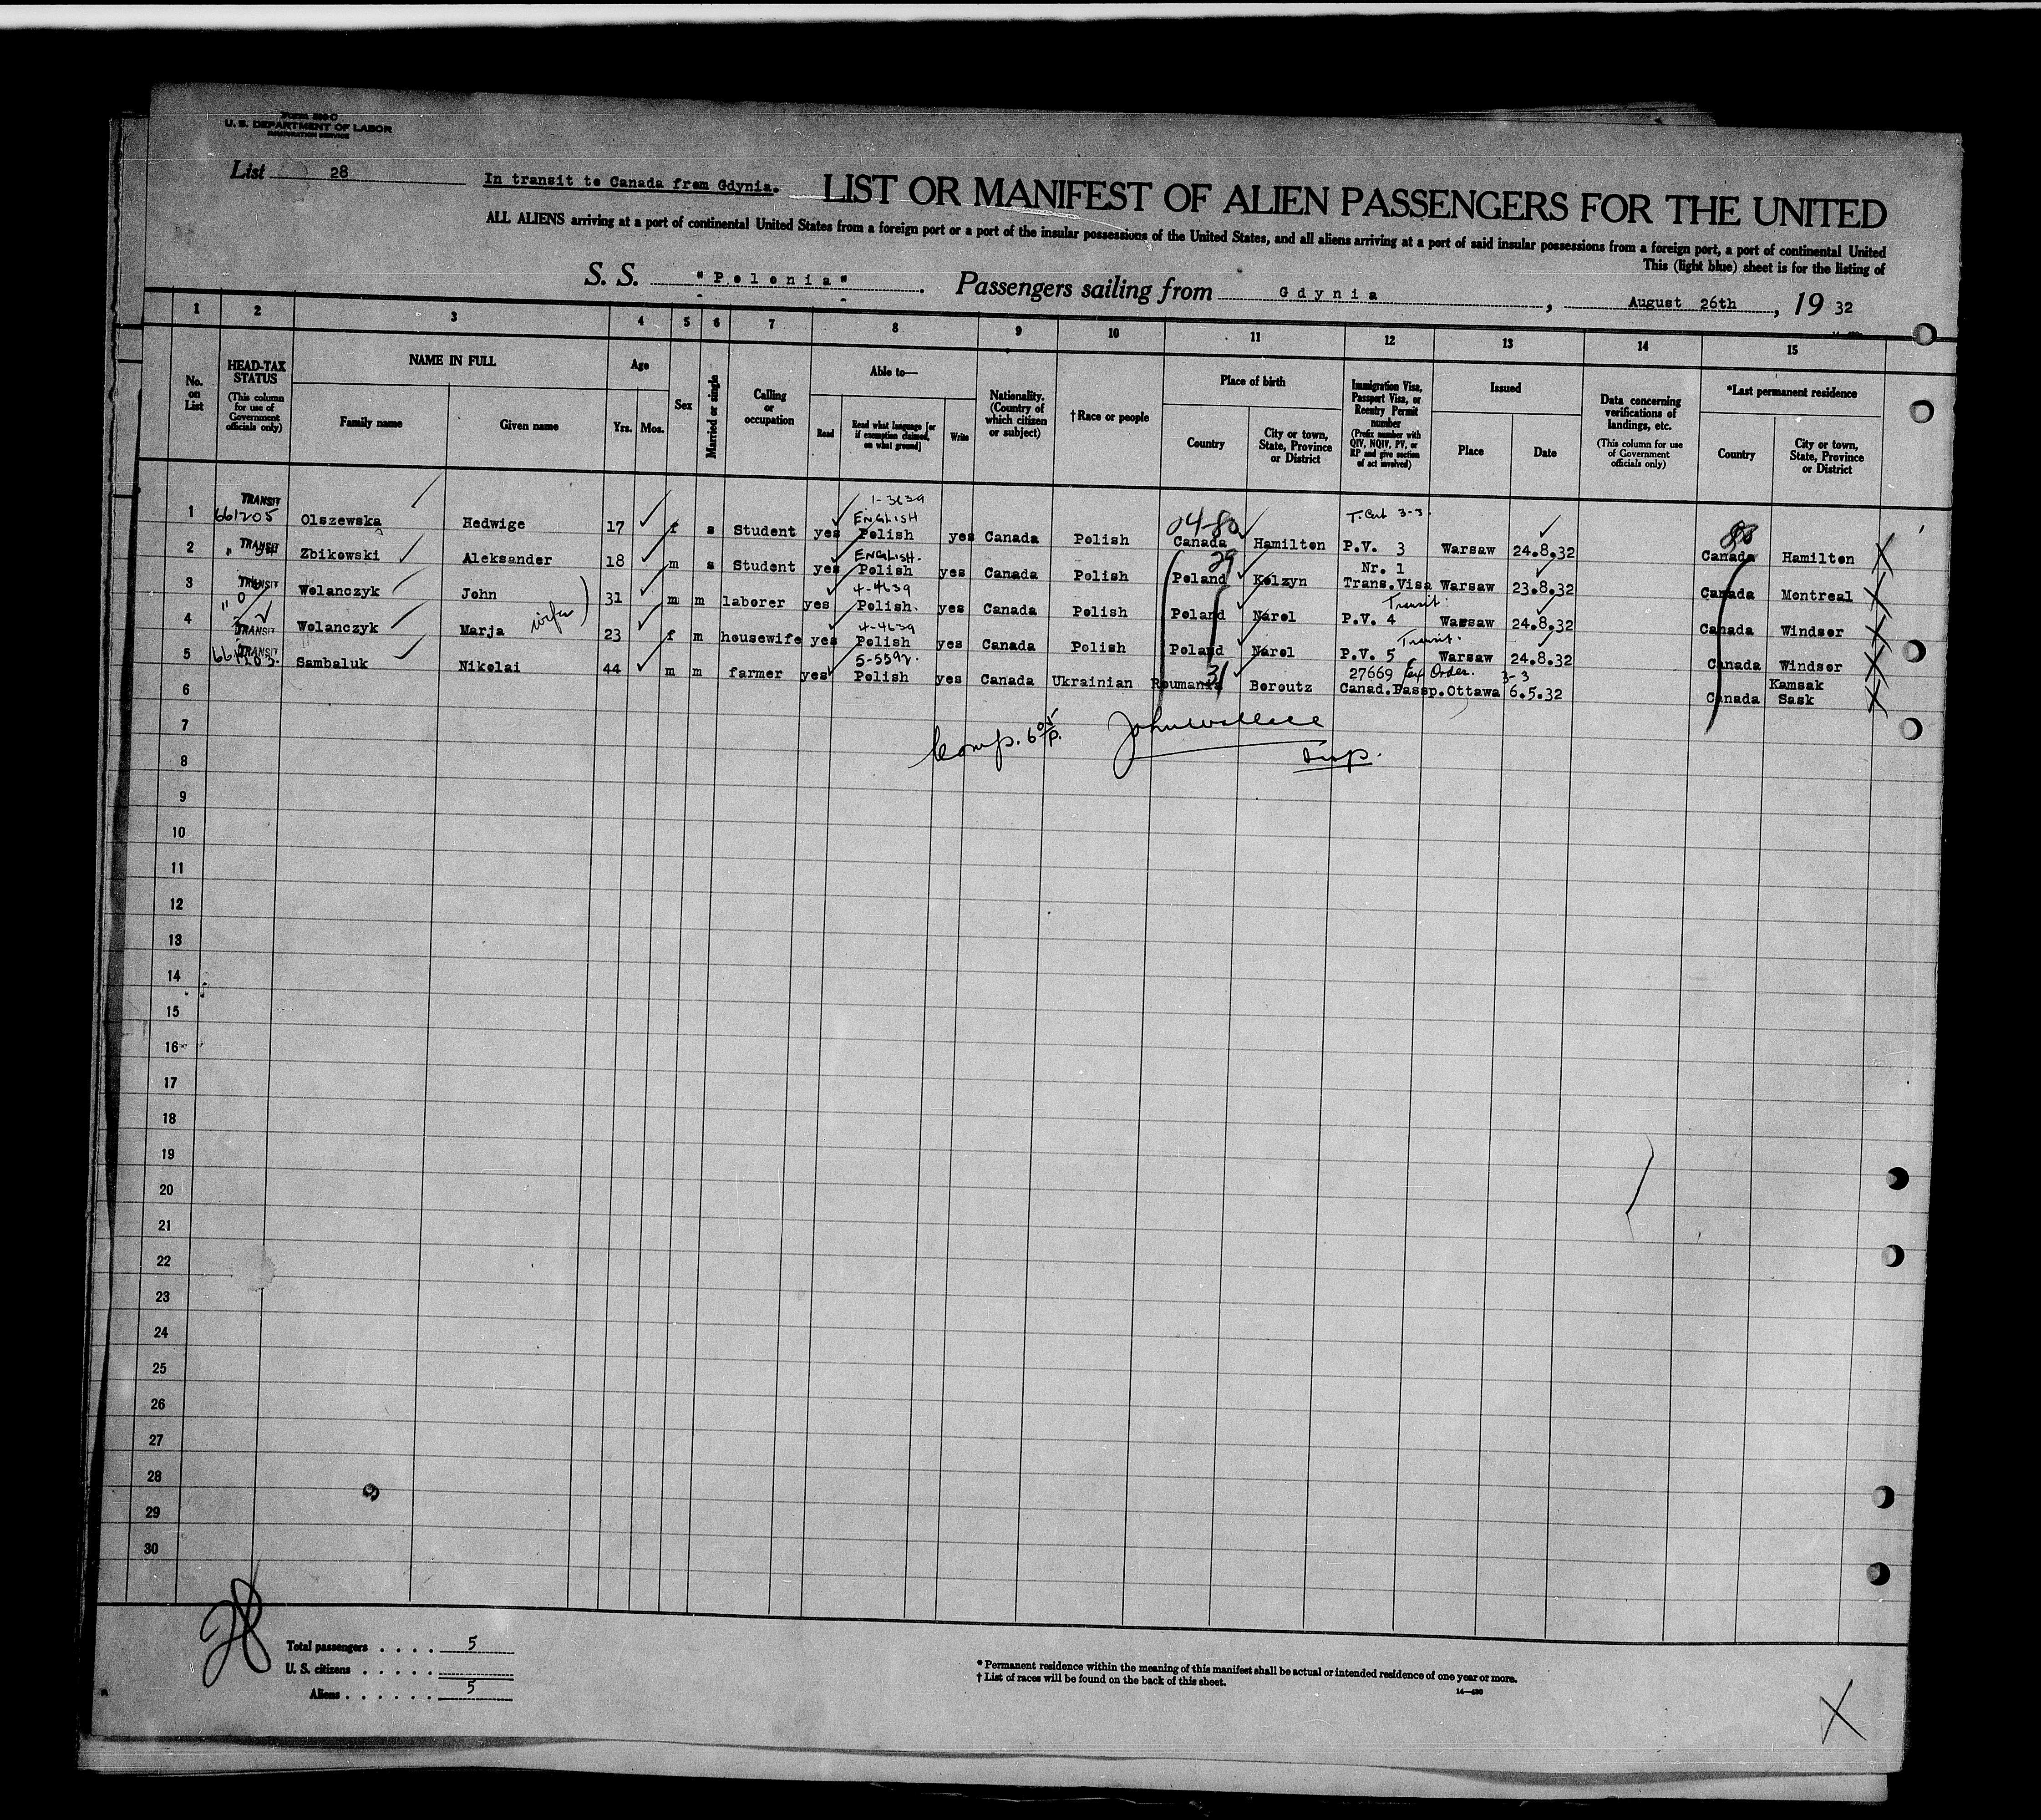 Form 500 C
U. S. DEPARTMENT OF LABOR
IMMIGRATION SERVICE
List 28
In transit to Canada from Gdynia.
LIST OR MANIFEST OF ALIEN PASSENGERS FOR THE UNITED
ALL ALIENS arriving at a port of continental United States from a foreign port or a port of the insular possessions of the United States, and all aliens arriving at a port of said insular possessions from a foreign port, a port of continental United
This (light blue) sheet is for the listing of
S. S. "Polonia". Passengers sailing from Gdynia, August 26th, 1932
1 2 3 4 5 6 7 8 9 10 11 12 13 14 15
No. on List
HEAD-TAX STATUS (This column for use of Government officials only)
NAME IN FULL
Family name
Given name
Age
Yrs. Mos.
Sex
Married or single
Calling or occupation
Able to—
Read
Read what language [or if exemption claimed, on what ground]
Write
Nationality. (Country of which citizen or subject)
† Race or people
Place of birth
Country
City or town, State, Province or District
Immigration Visa, Passport Visa, or Reentry Permit number (Prefix number with QIV, NQIV, PV, or RP and give section of act involved)
Issued
Place
Date
Data concerning verifications of landings, etc. (This column for use of Government officials only)
*Last permanent residence
Country
City or town, State, Province or District
TRANSIT 1-3639 T. Cert 3-3.
1 661205 Olszewska Hedwige 17 f s Student yes ENGLISH Polish yes Canada Polish Canada Hamilton P.V. 3 Warsaw 24.8.32 Canada Hamilton
2 TRANSIT Zbikowski Aleksander 18 m s Student yes ENGLISH. Polish yes Canada Polish 29 Poland Kolzyn Nr. 1 Trans.Visa Warsaw 23.8.32 Canada Montreal
3 TRANSIT Wolanczyk John 31 m m laborer yes 4-4639 Polish. yes Canada Polish Poland Narol Transit. P.V. 4 Warsaw 24.8.32 Canada Windsor
4 TRANSIT Wolanczyk Marja wife 23 f m housewife yes 4-4639 Polish yes Canada Polish Poland Narol Transit. P.V. 5 Warsaw 24.8.32 Canada Windsor
5 TRANSIT Sambaluk Nikolai 44 m m farmer yes 5-5592. Polish yes Canada Ukrainian 31 Roumania Boroutz 27669 Ex Order. 3-3 Canad.Passp. Ottawa 6.5.32 Canada Kamsak Sask
6
7 Comp. John Wallace
8 Insp.
9
10
11
12
13
14
15
16
17
18
19
20
21
22
23
24
25
26
27
28
29
30
Total passengers . . . . 5
U. S. citizens . . . . .
Aliens . . . . . . 5
* Permanent residence within the meaning of this manifest shall be actual or intended residence of one year or more.
† List of races will be found on the back of this sheet.
14—430